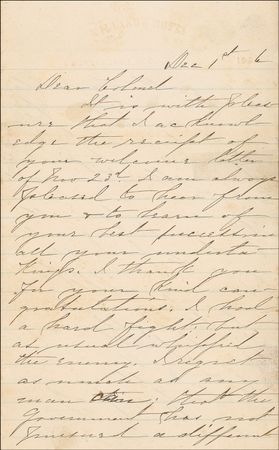 Dec 1st 6
Dear Colonel
It is with pleas
ure that I acknowl
edge the receipt of
your welcome letter
of Nov 23d. I am always
pleased to hear from
you & to learn of
your best success in
all your underta
kings. I thank you
for your kind con
gratulations. I had
a hard fight, but
as usual whipped
the enemy. I regret
as much as any
man can; that the
Goverment has not
pursued a different